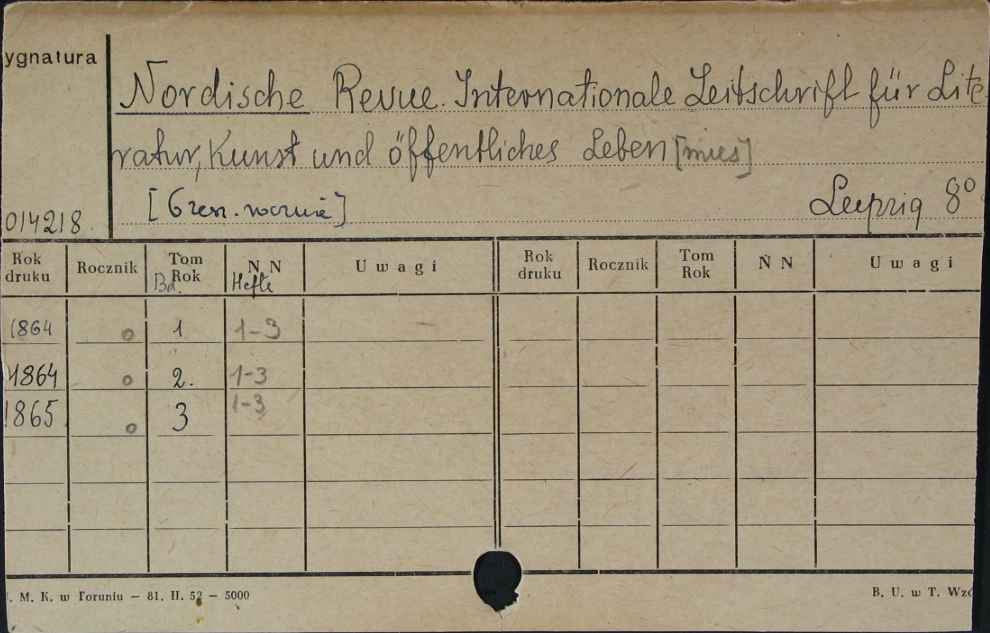 ygnatura
Nordische Revue. Internationale Zeitschrift für Lite-
ratur, Kunst und öffentliches Leben [mies]
[6 zesz. rocznie] Leipzig 8º
014218.
Rok druku Rocznik Tom Rok N N U w a g i Rok druku Rocznik Tom Rok N N U w a g i
Bd. Hefte
1864 o 1 1-3
1864 o 2. 1-3
1865 o 3 1-3
. M. K. w Toruniu — 81. II. 52 — 5000 B. U. w T. Wzó